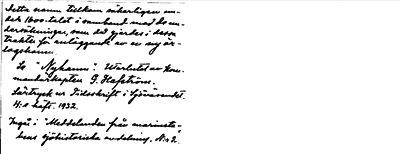 Detta namn tillkom säkerligen un-
der 1600-talet i samband med de un-
dersökningar, som då gjordes i dessa
trakter för anläggande av en ny ör-
logshamn.
Se "Nyhamn". Utarbetat av kom-
mendörkapten G. Hafström.
Särtryck ur Tidskrift i Sjöväsendet.
4:e häft. 1932.
Ingår i "Meddelanden från marinsta-
bens sjöhistoriska avdelning. N:o 2.